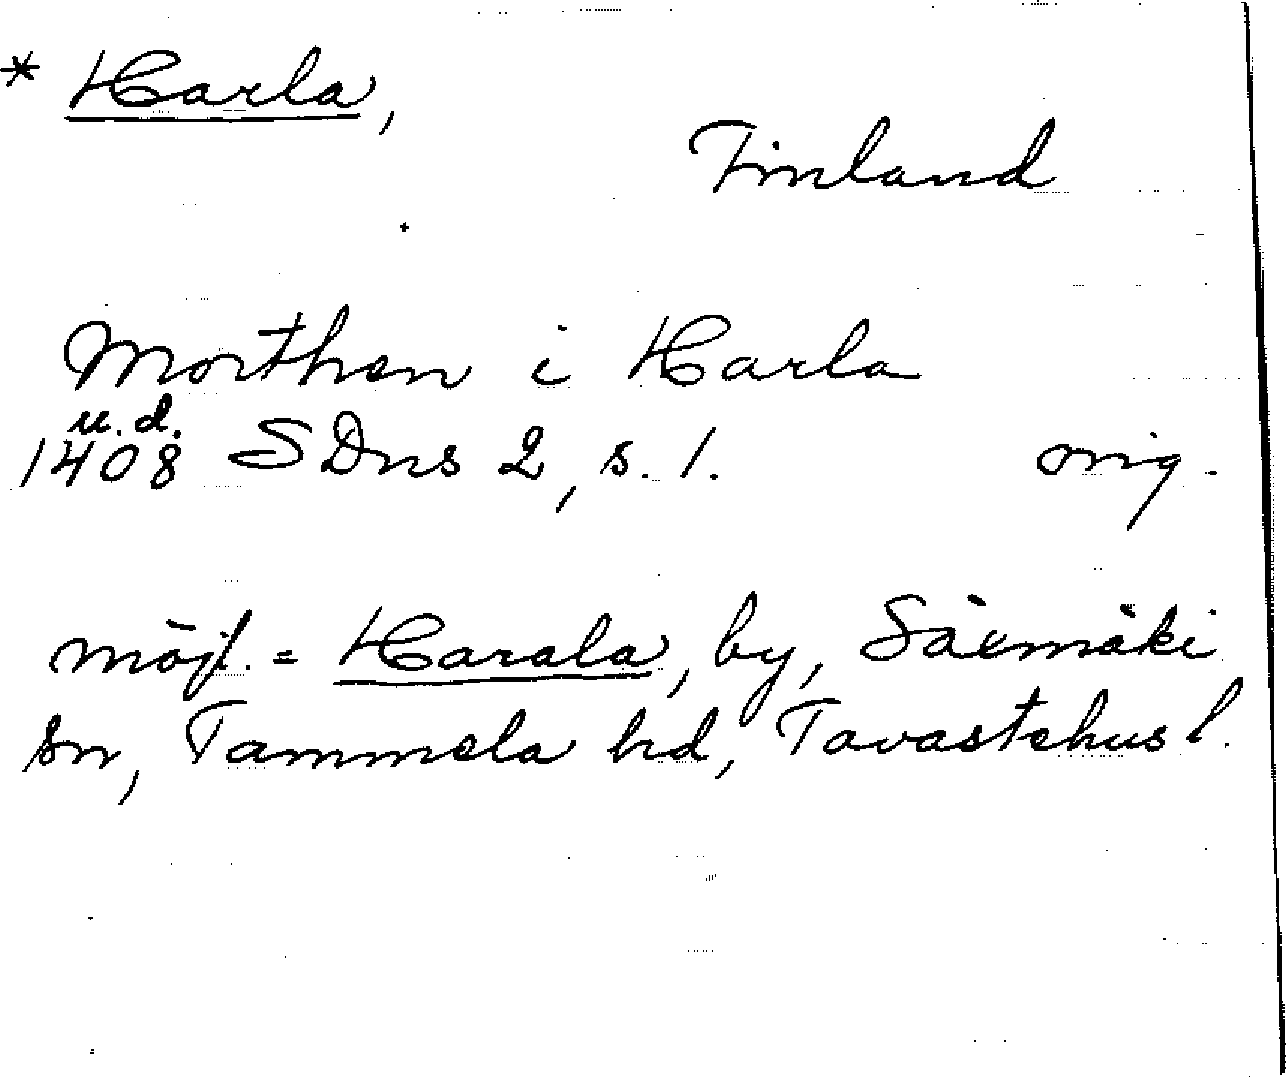 * Harla,
Finland
Morthen i Harla
u.d.
1408 SDns 2, s. 1. orig.
möjl. = Harala, by, Säämäki
sn, Tammela hd, Tavastehus l.